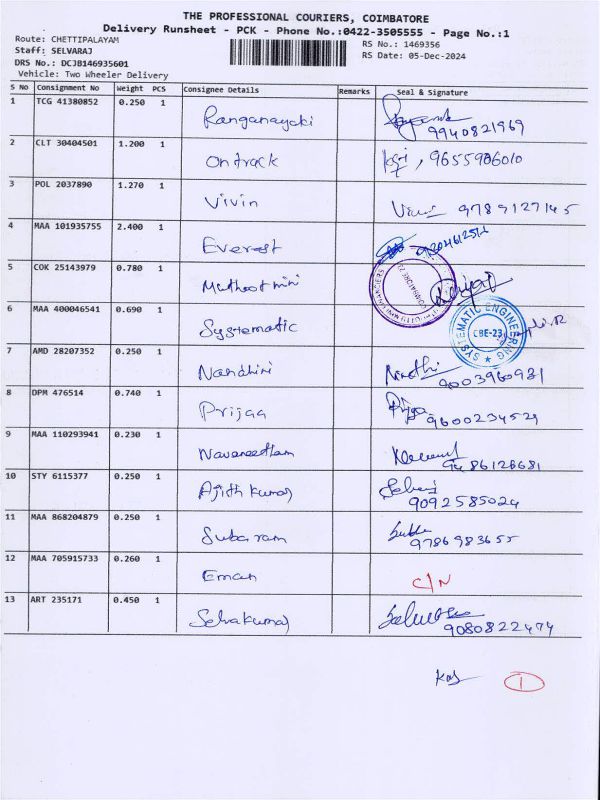 THE PROFESSIONAL COURIERS, COIMBATORE
Delivery Runsheet - PCK - Phone No.:0422-3505555 - Page No.:1
Route: CHETTIPALAYAM
RS No.: 1469356
Staff: SELVARAJ
RS Date: 05-Dec-2024
DRS No.: DCJB146935601
Vehicle: Two Wheeler Delivery
S No Consignment No Weight PCS Consignee Details Remarks Seal & Signature
1 TCG 41380852 0.250 1 Ranganayaki
9940821969
2 CLT 30404501 1.200 1 Ontrack , 9655986010
3 POL 2037890 1.270 1 Vivin 9789127145
4 MAA 101935755 2.400 1 Everest
5 COK 25143979 0.780 1 Muthoot mini
6 MAA 400046541 0.690 1 Systematic
SYSTEMATIC ENGINEERING
CBE-23
7 AMD 28207352 0.250 1 Nandhini
9003960981
8 DPM 476514 0.740 1 Prijaa
9600234529
9 MAA 110293941 0.230 1 Navaneetham
9486126681
10 STY 6115377 0.250 1 Ajith Kumar
9092585024
11 MAA 868204879 0.250 1 Subaram
9786983655
12 MAA 705915733 0.260 1 Eman C/N
13 ART 235171 0.450 1 Selvakumar
9080822474
1